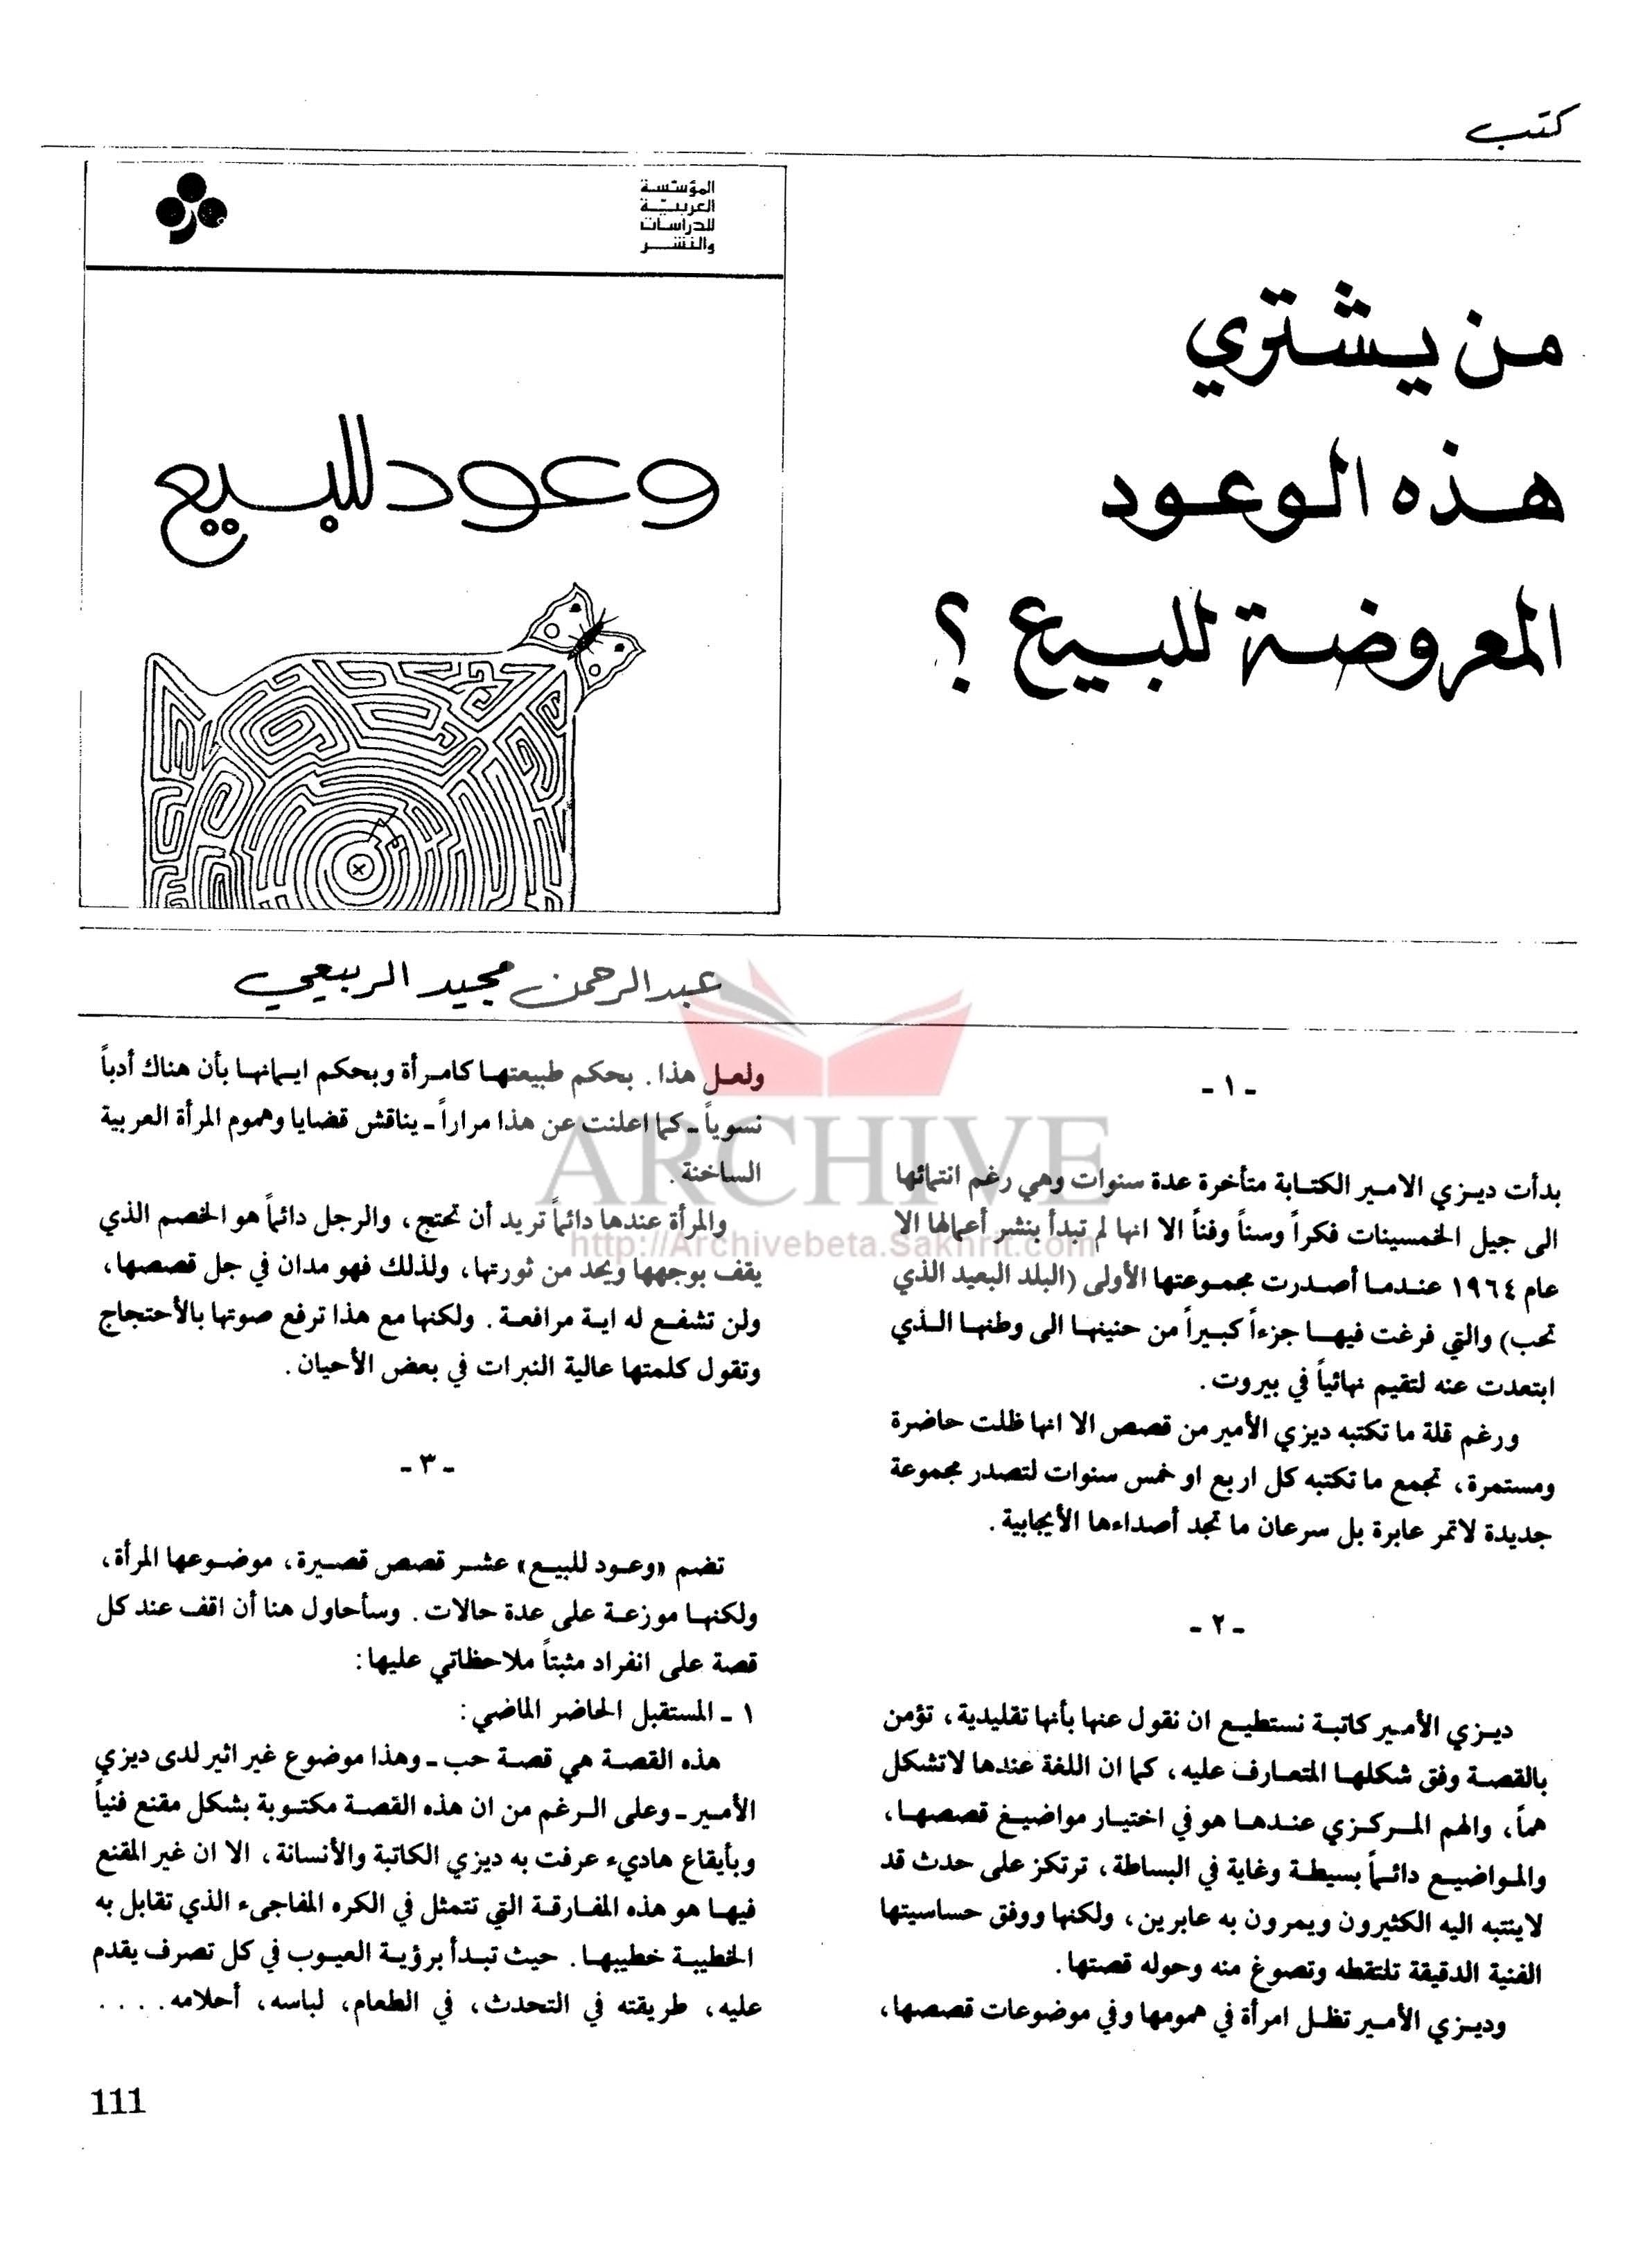 كتب
من يشتري
هذه الوعود
المعروضة للبيع ؟
المؤسسة
العربية
للدراسات
والنشر
وعود للبيع
عبدالرحمن مجيد الربيعي
- ١ -
بدأت ديزي الامير الكتابة متأخرة عدة سنوات وهي رغم انتمائها
الى جيل الخمسينات فكراً وسناً وفناً الا انها لم تبدأ بنشر أعمالها الا
عام ١٩٦٤ عندما أصدرت مجموعتها الأولى (البلد البعيد الذي
تحب) والتي فرغت فيها جزءاً كبيراً من حنينها الى وطنها الذي
ابتعدت عنه لتقيم نهائياً في بيروت .
ورغم قلة ما تكتبه ديزي الأمير من قصص الا انها ظلت حاضرة
ومستمرة، تجمع ما تكتبه كل اربع او خمس سنوات لتصدر مجموعة
جديدة لاتمر عابرة بل سرعان ما تجد أصداءها الأيجابية .
- ٢ -
ديزي الأمير كاتبة نستطيع ان نقول عنها بأنها تقليدية، تؤمن
بالقصة وفق شكلها المتعارف عليه، كما ان اللغة عندها لاتشكل
هماً، والهم المركزي عندها هو في اختيار مواضيغ قصصها،
والمواضيع دائماً بسيطة وغاية في البساطة، ترتكز على حدث قد
لاينتبه اليه الكثيرون ويمرون به عابرين، ولكنها ووفق حساسيتها
الفنية الدقيقة تلتقطه وتصوغ منه وحوله قصتها .
وديزي الأمير تظل امرأة في همومها وفي موضوعات قصصها،
ولعل هذا . بحكم طبيعتها كامرأة وبحكم ايمانها بأن هناك أدباً
نسوياً - كما اعلنت عن هذا مراراً - يناقش قضايا وهموم المرأة العربية
الساخنة .
والمرأة عندها دائماً تريد أن تحتج، والرجل دائماً هو الخصم الذي
يقف بوجهها ويحد من ثورتها، ولذلك فهو مدان في جل قصصها،
ولن تشفع له اية مرافعة . ولكنها مع هذا ترفع صوتها بالأحتجاج
وتقول كلمتها عالية النبرات في بعض الأحيان .
- ٣ -
تضم «وعود للبيع» عشر قصص قصيرة، موضوعها المرأة،
ولكنها موزعة على عدة حالات . وسأحاول هنا أن اقف عند كل
قصة على انفراد مثبتاً ملاحظاتي عليها:
١ - المستقبل الحاضر الماضي:
هذه القصة هي قصة حب - وهذا موضوع غير اثير لدى ديزي
الأمير - وعلى الرغم من ان هذه القصة مكتوبة بشكل مقنع فنياً
وبأيقاع هاديء عرفت به ديزي الكاتبة والأنسانة، الا ان غير المقنع
فيها هو هذه المفارقة التي تتمثل في الكره المفاجىء الذي تقابل به
الخطيبة خطيبها . حيث تبدأ برؤية العيوب في كل تصرف يقدم
عليه، طريقته في التحدث، في الطعام، لباسه، أحلامه . . . .
111
ARCHIVE
http://Archivebeta.Sakhrit.com